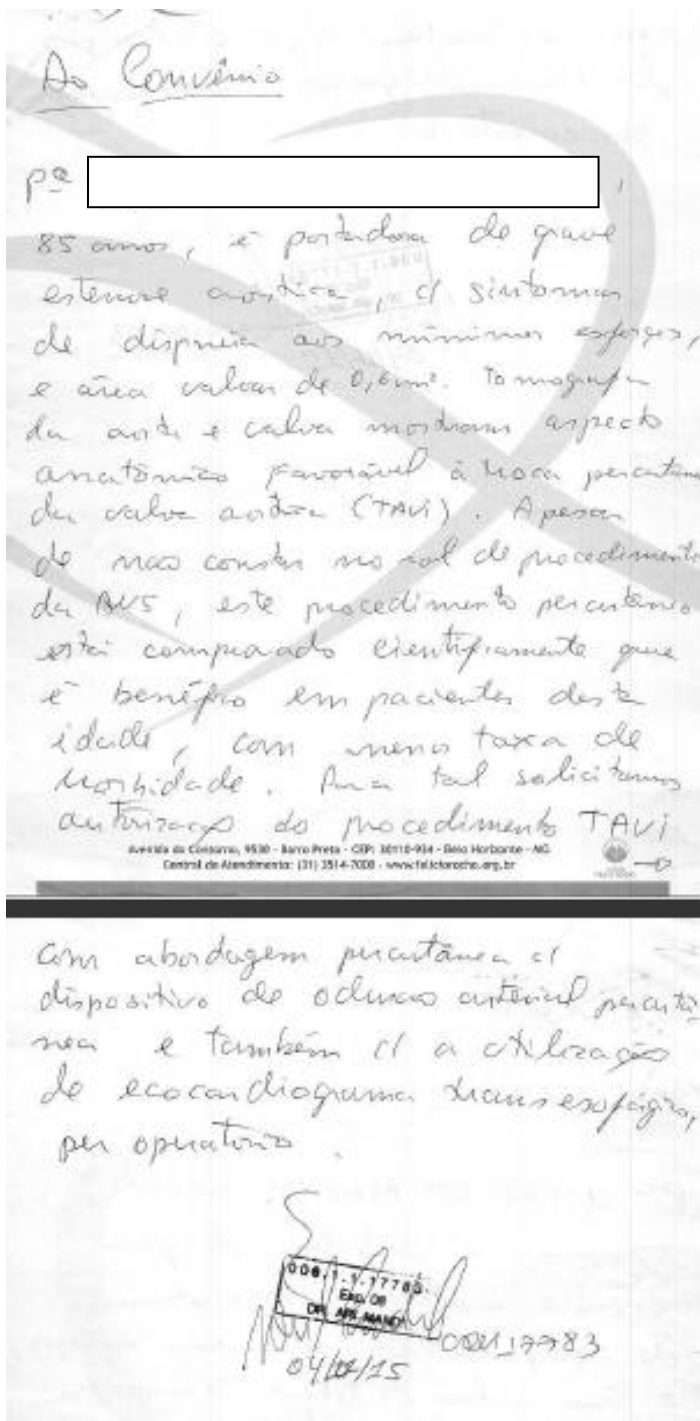 Ao Convênio
pª
85 anos, é portadora de grave
estenose aórtica, c/ sintomas
de dispneia aos mínimos esforços,
e área valvar de 0,6cm². Tomografia
da aorta e valva mostraram aspecto
anatômico favorável à troca percutânea
da valva aórtica (TAVI). Apesar
de nao constar no rol de procedimento
da ANS, este procedimento percutâneo
está comprovado cientificamente que
é benéfico em pacientes desta
idade, com menor taxa de
morbidade. Para tal solicitamos
autorizaçao do procedimento TAVI
Avenida do Contorno, 9530 - Barro Preto - CEP: 30110-934 - Belo Horizonte - MG
Central de Atendimento: (31) 3514-7000 - www.felicirocho.org.br
com abordagem percutânea c/
dispositivo de oclusao arterial percutâ
nea e também c/ a utilização
de ecocardiograma transesofágico,
per operatorio.
Esp. 08